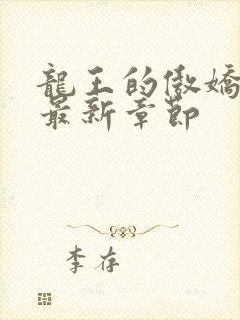 龍王的傲嬌
最新章節
李存